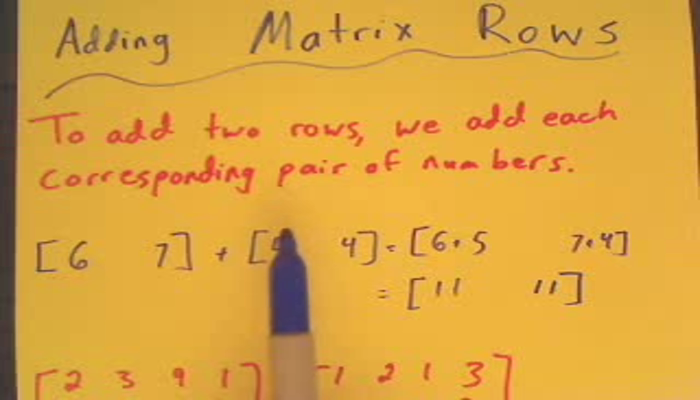 Adding Matrix Rows
To add two rows, we add each
corresponding pair of numbers.
[6 7] + [ 4] = [6+5 7+4]
= [11 11]
[2 3 9 1] 1 2 1 3]